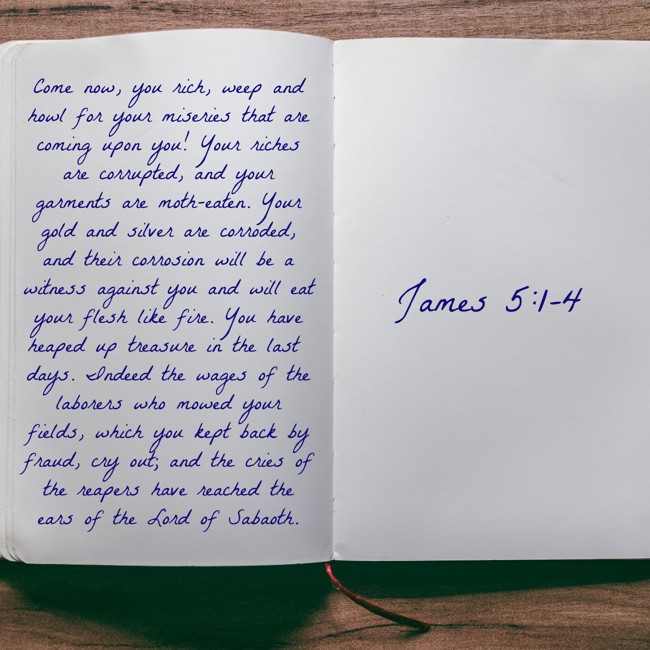 Come now, you rich, weep and
howl for your miseries that are
coming upon you! Your riches
are corrupted, and your
garments are moth-eaten. Your
gold and silver are corroded,
and their corrosion will be a
witness against you and will eat
your flesh like fire. You have
heaped up treasure in the last
days. Indeed the wages of the
laborers who mowed your
fields, which you kept back by
fraud, cry out; and the cries of
the reapers have reached the
ears of the Lord of Sabaoth.
James 5:1-4